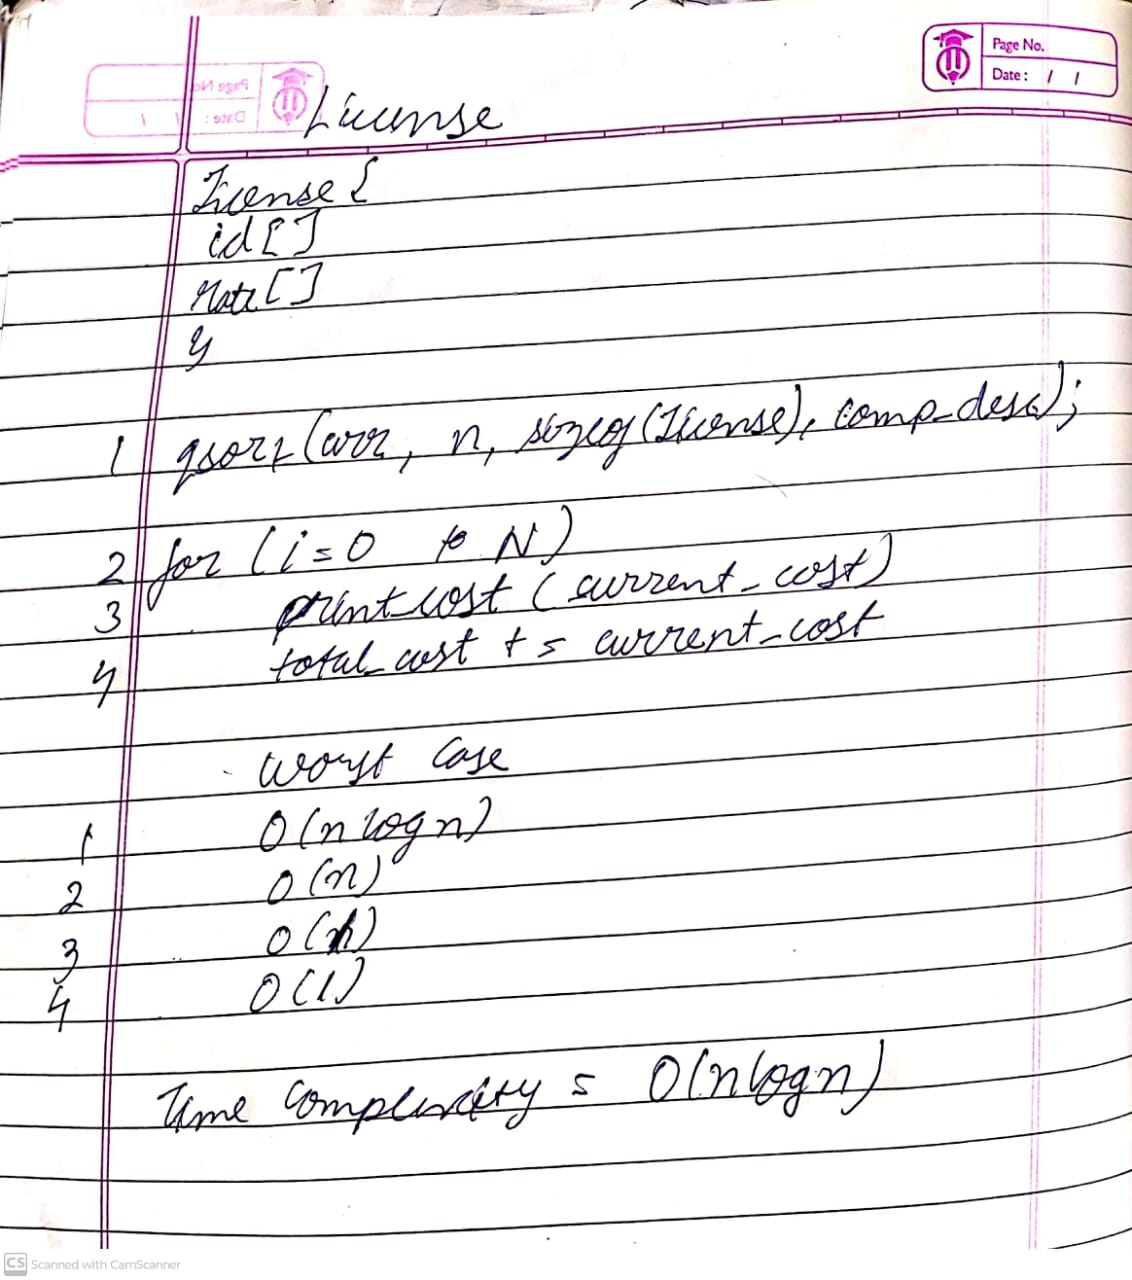 Page No.
Date: / /
License
License {
id []
rate []
}
1 qsort (arr, n, sizeof (License), comp_desc);
2 for (i = 0 to N)
3 print_cost (current_cost)
4 total_cost += current_cost
worst case
1 O(n log n)
2 O(n)
3 O(n)
4 O(1)
Time Complexity = O(n log n)
CS Scanned with CamScanner